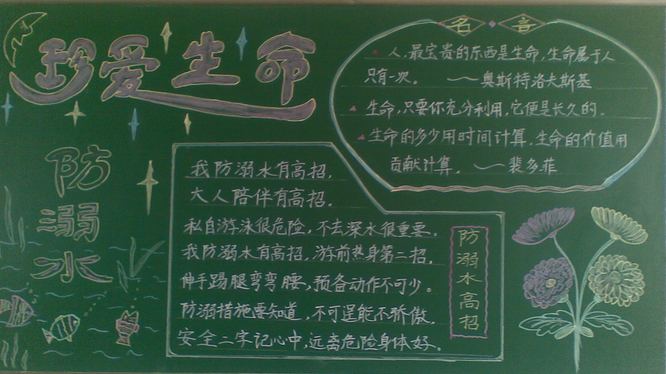 珍爱生命
防溺水
名言
人,最宝贵的东西是生命,生命属于人
只有一次。 ——奥斯特洛夫斯基
生命,只要你充分利用,它便是长久的。
生命的多少用时间计算,生命的价值用
贡献计算。 ——裴多菲
我防溺水有高招,
大人陪伴有高招,
私自游泳很危险,不去深水很重要。
我防溺水有高招,游前热身第二招,
伸手踢腿弯弯腰,预备动作不可少。
防溺措施要知道,不可逞能不骄傲。
安全二字记心中,远离危险身体好。
防溺水高招